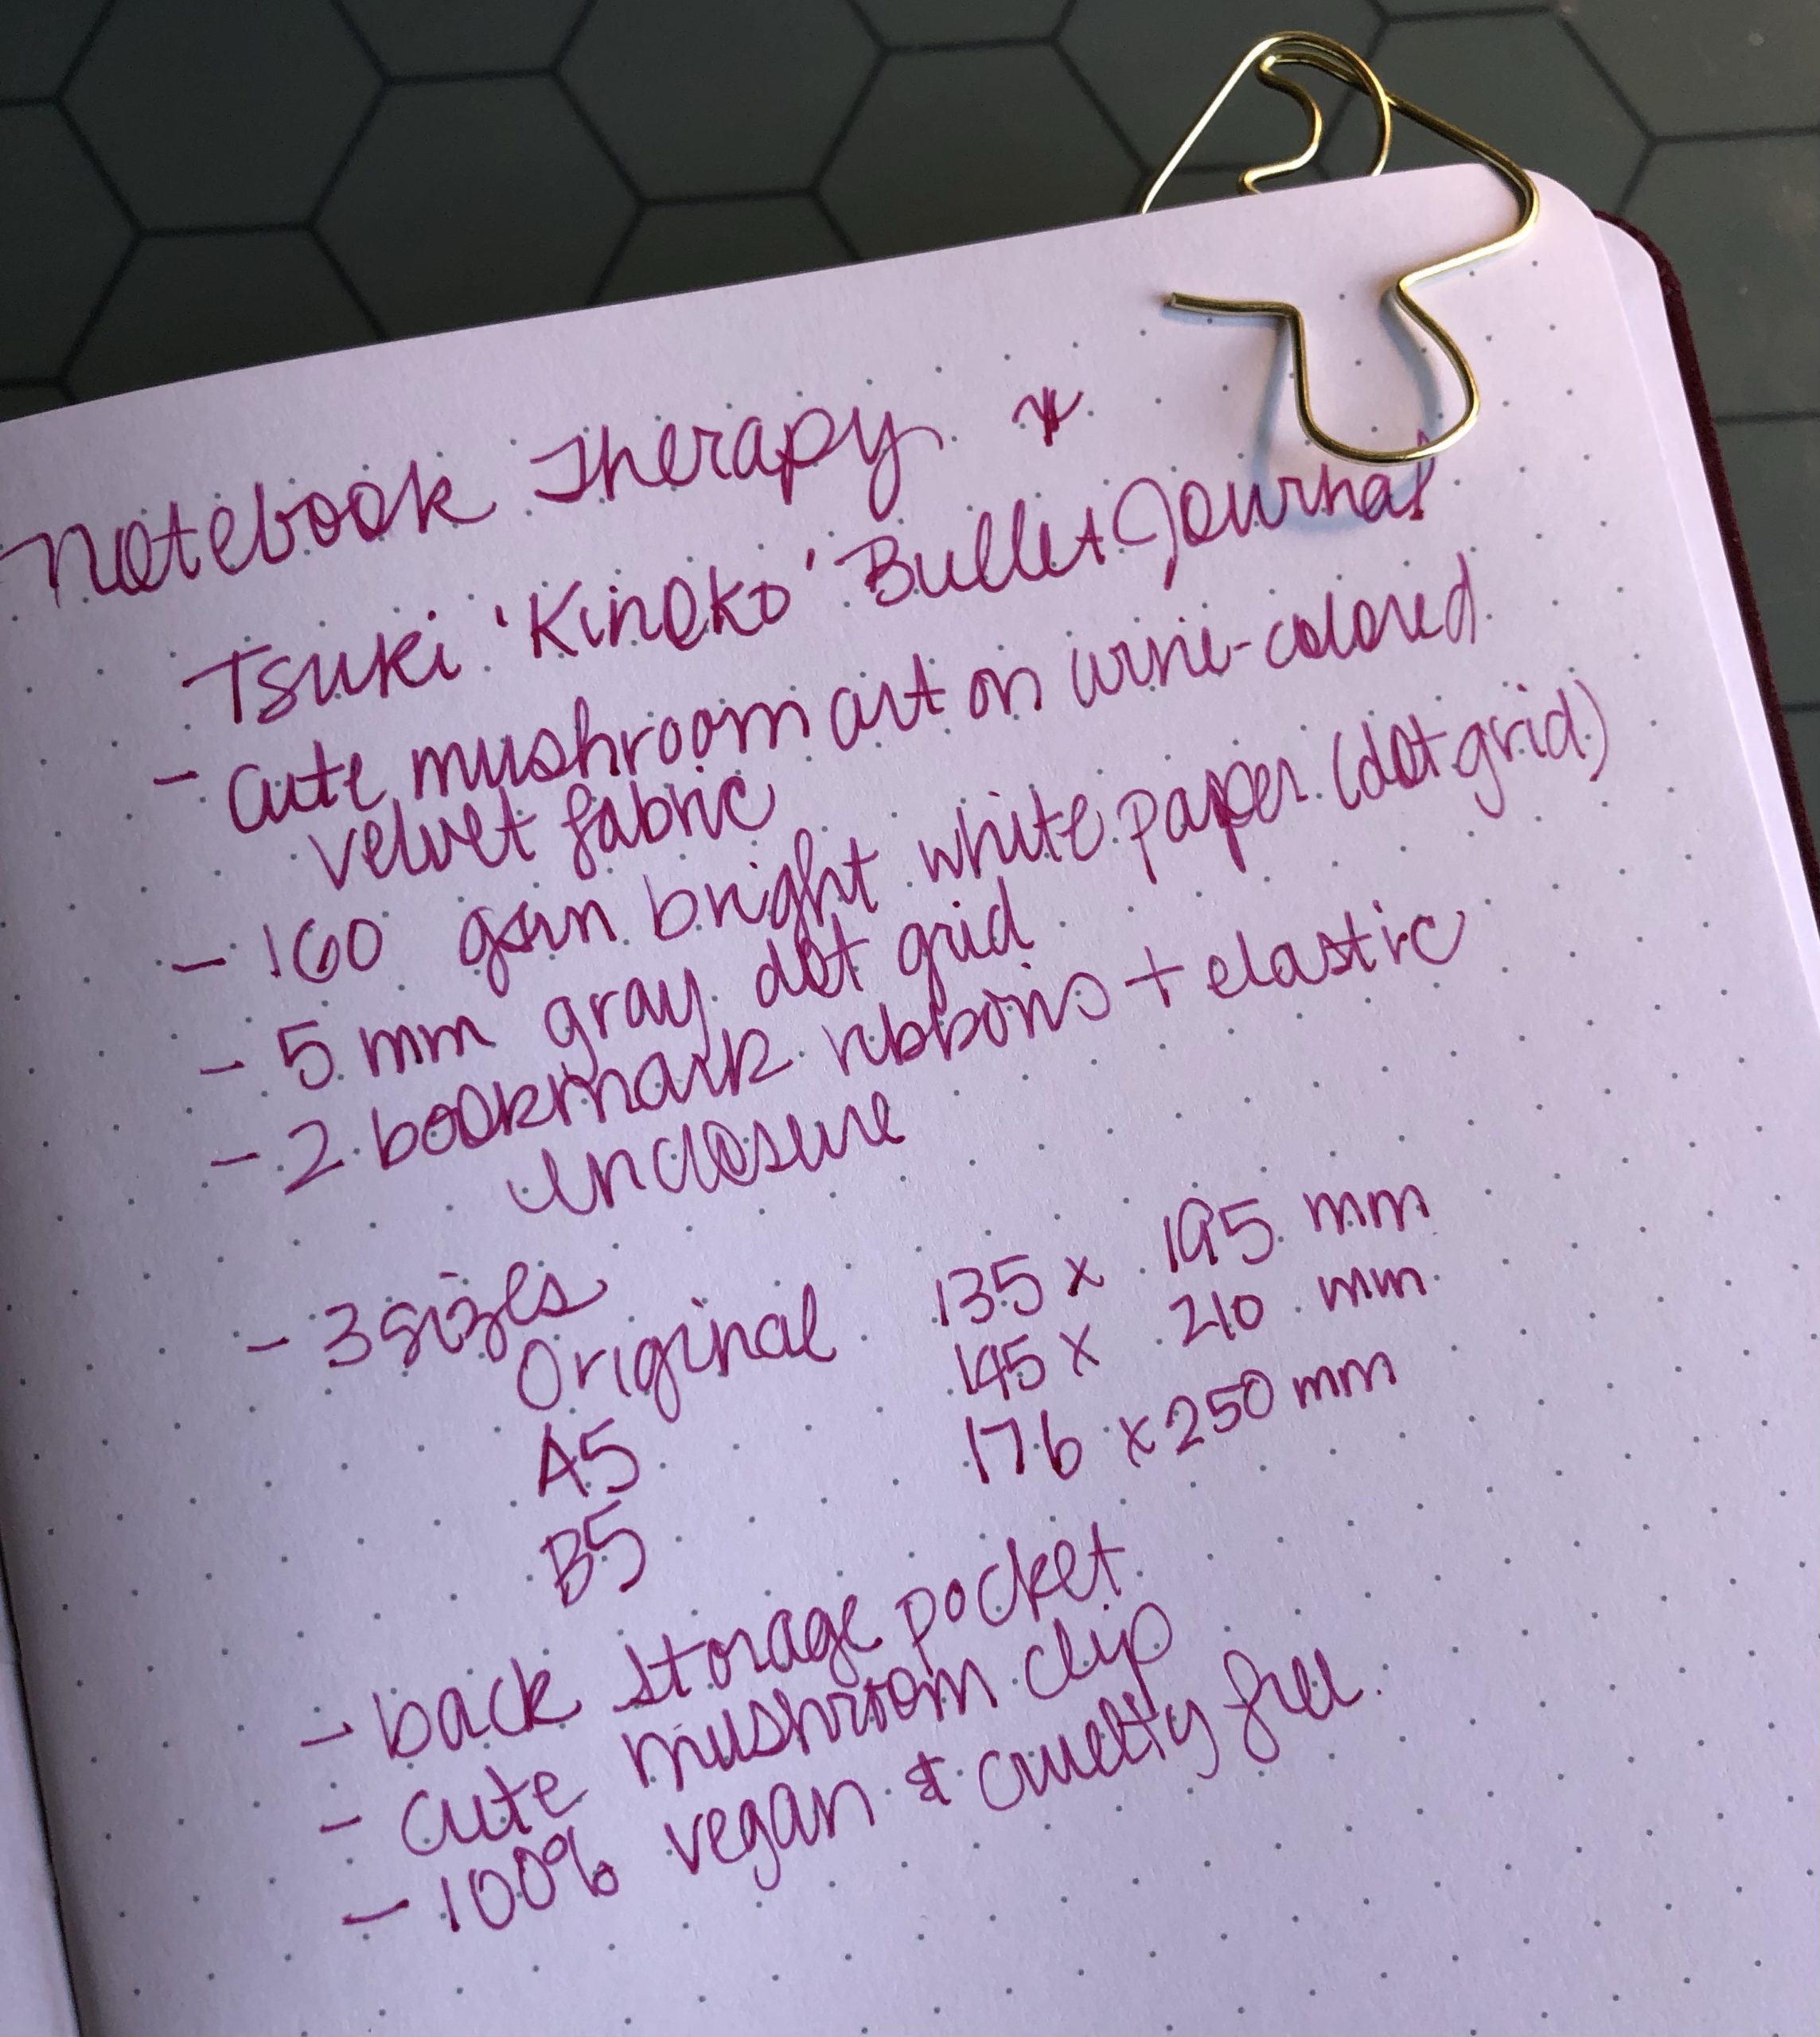 Notebook Therapy *
Tsuki 'Kinoko' Bullet Journal
- cute mushroom art on wine-colored
velvet fabric
- 160 gsm bright white paper (dot grid)
- 5 mm gray dot grid
- 2 bookmark ribbons + elastic
enclosure
- 3 sizes
Original 135 x 195 mm
A5 145 x 210 mm
B5 176 x 250 mm
- back storage pocket
- cute mushroom clip
- 100% vegan & cruelty free